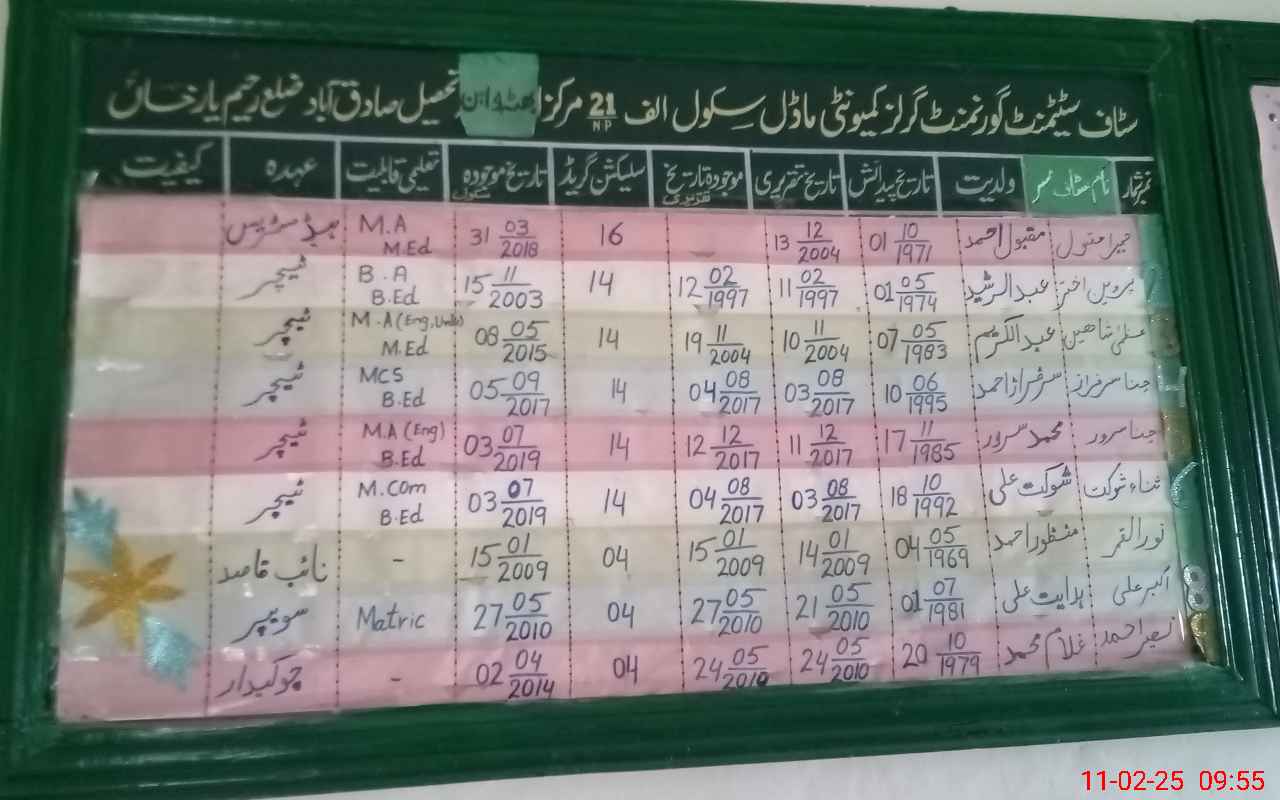 سٹاف سٹیٹمنٹ گورنمنٹ گرلز کمیونٹی ماڈل سکول الف 21/NP مرکز تحصیل صادق آباد ضلع رحیم یار خان
نمبر شمار نام سٹاف ممبر ولدیت تاریخ پیدائش تاریخ تقرری موجودہ تاریخ تقرری سلیکشن گریڈ تاریخ موجودہ سکول تعلیمی قابلیت عہدہ کیفیت
مقبول احمد 01 10/1971 13 12/2004 16 31 03/2018 M.A M.Ed ہیڈ مسٹریس
2 پروین اختر عبدالرشید 01 05/1974 11 02/1997 12 02/1997 14 15 11/2003 B.A B.Ed ٹیچر
سلمیٰ شاھین عبدالکریم 07 05/1983 10 11/2004 19 11/2004 14 08 05/2015 M.A (Eng, Urdu) M.Ed ٹیچر
4 سرفراز سرفراز احمد 10 06/1995 03 08/2017 04 08/2017 14 05 09/2017 MCS B.Ed ٹیچر
سرور محمد سرور 17 11/1985 11 12/2017 12 12/2017 14 03 07/2019 M.A (Eng) B.Ed ٹیچر
ثناء شوکت شوکت علی 18 10/1992 03 08/2017 04 08/2017 14 03 07/2019 M.Com B.Ed ٹیچر
نور القمر منظور احمد 04 05/1969 14 01/2009 15 01/2009 04 15 01/2009 - نائب قاصد
8 اکبر علی ہدایت علی 01 07/1981 21 05/2010 27 05/2010 04 27 05/2010 Matric سویپر
9 نصیر احمد غلام محمد 20 10/1979 24 05/2010 24 05/2010 04 02 04/2014 - چوکیدار
11-02-25 09:55